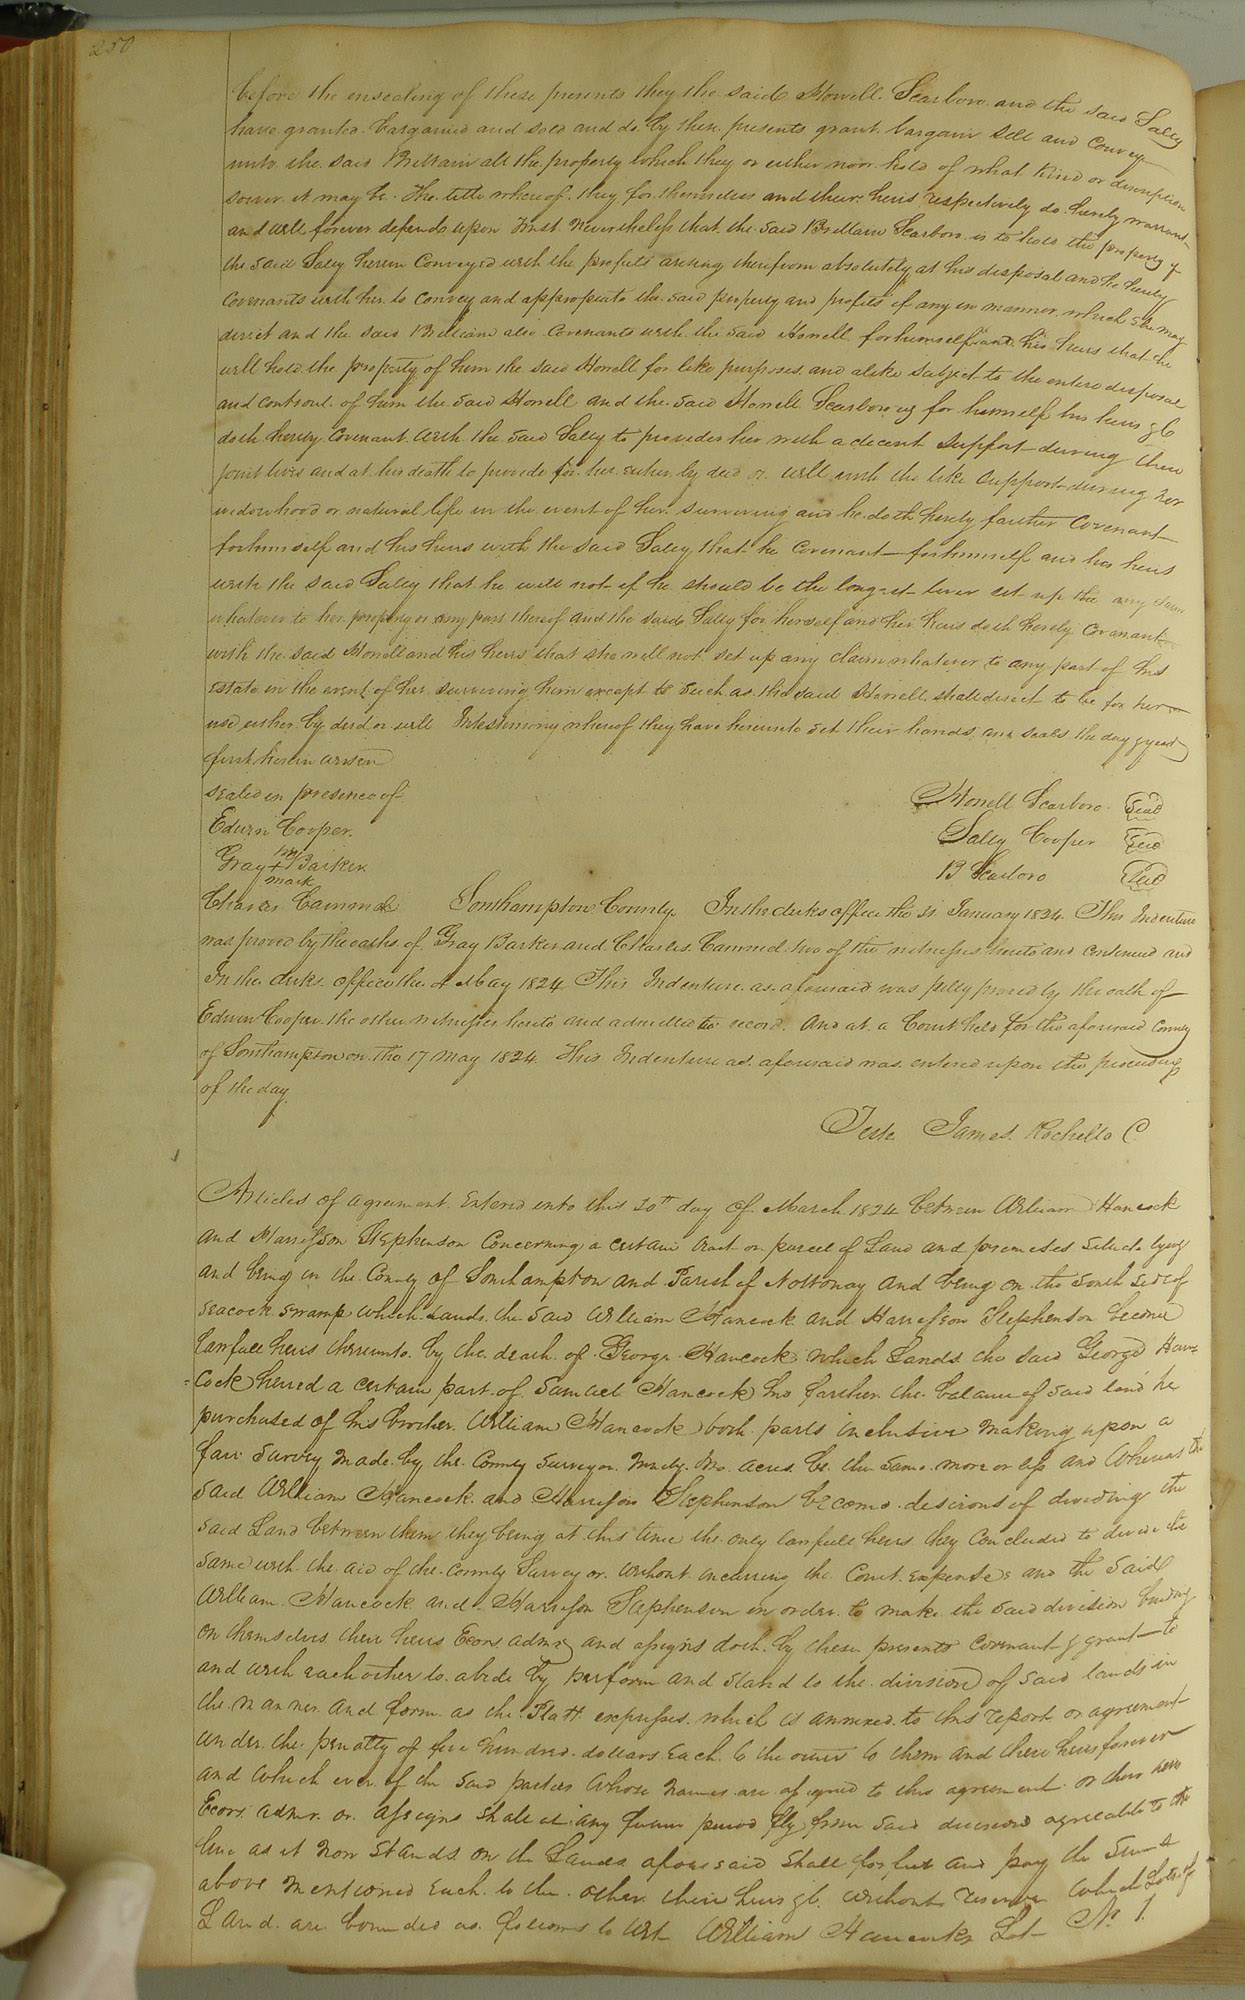 250
before the ensealing of these presents they the said Howell Scarboro and the said Sally
have granted bargained and sold and do by these presents grant bargain sell and convey
unto the said Brittain all the property which they or either now hold of what kind or description
soever it may be. The title whereof they for themselves and their heirs respectively do hereby warrant
and will forever defend upon trust nevertheless that the said Brittain Scarboro is to hold the property of
the said Sally herein conveyed with the profits arising therefrom absolutely at his disposal and he hereby
covenants with her to convey and appropriate the said property and profits if any in manner which she may
direct and the said Brittain also covenants with the said Howell for himself and his heirs that he
will hold the property of him the said Howell for like purposes and alike subject to the entire disposal
and controul of him the said Howell and the said Howell Scarboro for himself his heirs &c
doth hereby covenant with the said Sally to provide her with a decent support during their
joint lives and at his death to provide for her either by deed or will with the like support during her
widowhood or natural life in the event of her surviving and he doth hereby farther covenant
for himself and his heirs with the said Sally that he covenant for himself and his heirs
with the said Sally that he will not if he should be the longest liver set up the any claim
whatever to her property or any part thereof and the said Sally for herself and her heirs doth hereby covenant
with the said Howell and his heirs that she will not set up any claim whatever to any part of his
estate in the event of her surviving him except to such as the said Howell shall direct to be for her
use either by deed or will In testimony whereof they have hereunto set their hands and seals the day & year
first herein written
sealed in presence of
Howell Scarboro Seal
Edwin Cooper.
Sally Cooper Seal
Gray his + mark Barker
B Scarboro Seal
Charles Cammel Southampton County. In the clerks office the 31 January 1824. This Indenture
was proved by the oaths of Gray Barker and Charles Cammel two of the witnesses hereto and continued and
In the clerks office the 4 May 1824 This Indenture as aforesaid was fully proved by the oath of
Edwin Cooper the other witness hereto and admitted to record. And at a Court held for the aforesaid County
of Southampton on the 17 May 1824. This Indenture as aforesaid was entered upon the proceedings
of the day.
Teste James Rochelle C
Articles of agreement Entered into this 20th day of March 1824 between William Hancock
and Harrisson Stephenson Concerning a certain tract or parcel of Land and premises situate lying
and being in the County of Southampton and Parish of Nottoway and being on the South side of
seacock swamp which Lands the said William Hancock and Harrisson Stephenson become
lawfull heirs thereunto by the death of George Hancock which Lands the said George Han=
=cock heired a certain part of Samuel Hancock his farther the balance of said land he
purchased of his brother William Hancock both parts inclusive making upon a
fair survey made by the County surveyor Ninety two acres be the same more or less and Whereas the
said William Hancock and Harrisson Stephenson become desirous of dividing the
said Land between them they being at this time the only lawfull heirs they concluded to divide the
same with the aid of the County Surveyor without incurring the Court expenses and the said
William Hancock and Harrisson Stephenson in order to make the said division binding
on themselves their heirs Exors. admrs and assigns doth by these presents covenant & grant to
and with each other to abide by perform and stand to the division of said lands in
the manner and form as the Platt expresses which is annexed to this report or agreement
under the penalty of five hundred dollars Each to the other to them and their heirs forever
and which ever of the said parties whose names are assigned to this agreement or their heirs
Exors. admr. or assigns shall at any future period fly from said division agreeable to the
line as it now stands on the Lands aforesaid shall forfeit and pay the sum
above mentioned Each to the other their heirs &c. without reserve which Lots of
Land are bounded as follows to wit William Hancocks Lot No 1.